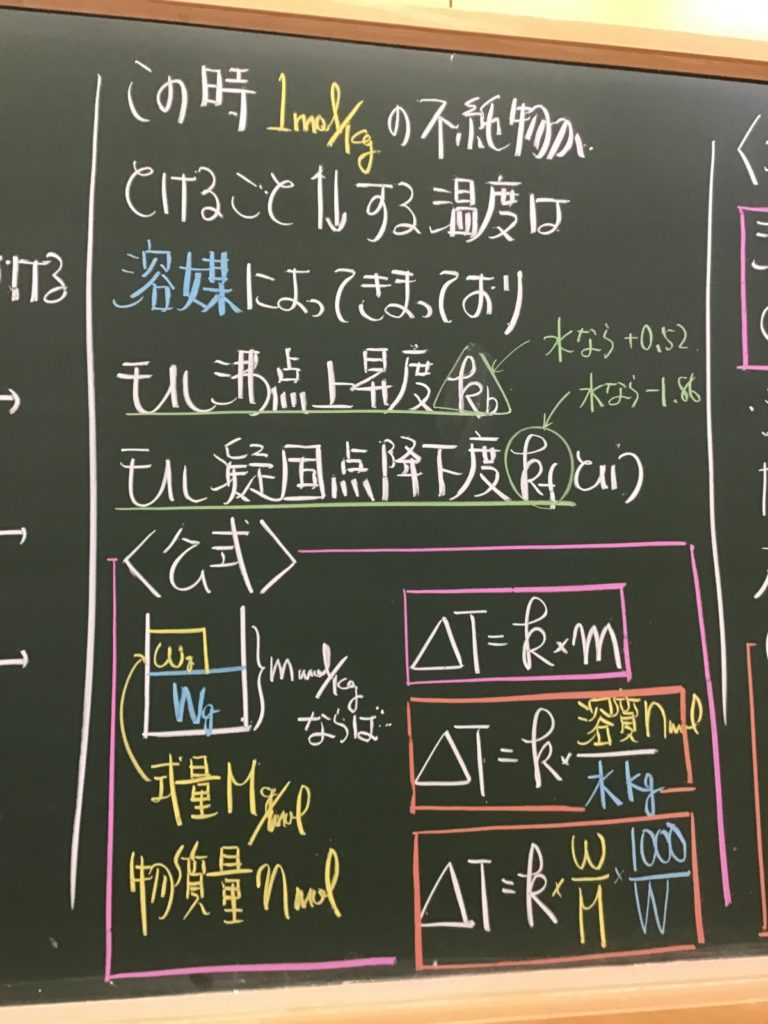 ける
この時 1mol/kg の不純物が
とけるごと⇅する温度は
溶媒によってきまっており
モル沸点上昇度 kb
水なら+0.52
モル凝固点降下度 kf という
水なら-1.86
〈公式〉
wg
Wg
m mol/kg
ならば…
式量 M g/mol
物質量 n mol
ΔT=k×m
ΔT=k×溶質n mol/水kg
ΔT=k×w/M×1000/W